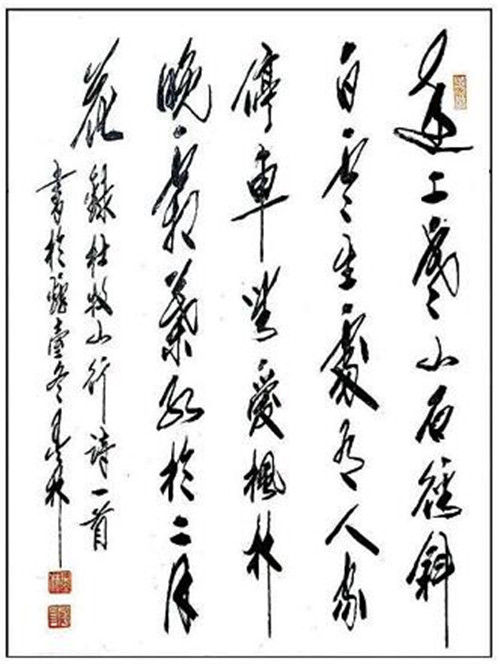 遠上寒山石徑斜
白雲生處有人家
停車坐愛楓林
晚霜葉紅於二月
花 錄杜牧山行詩一首
書於冬林